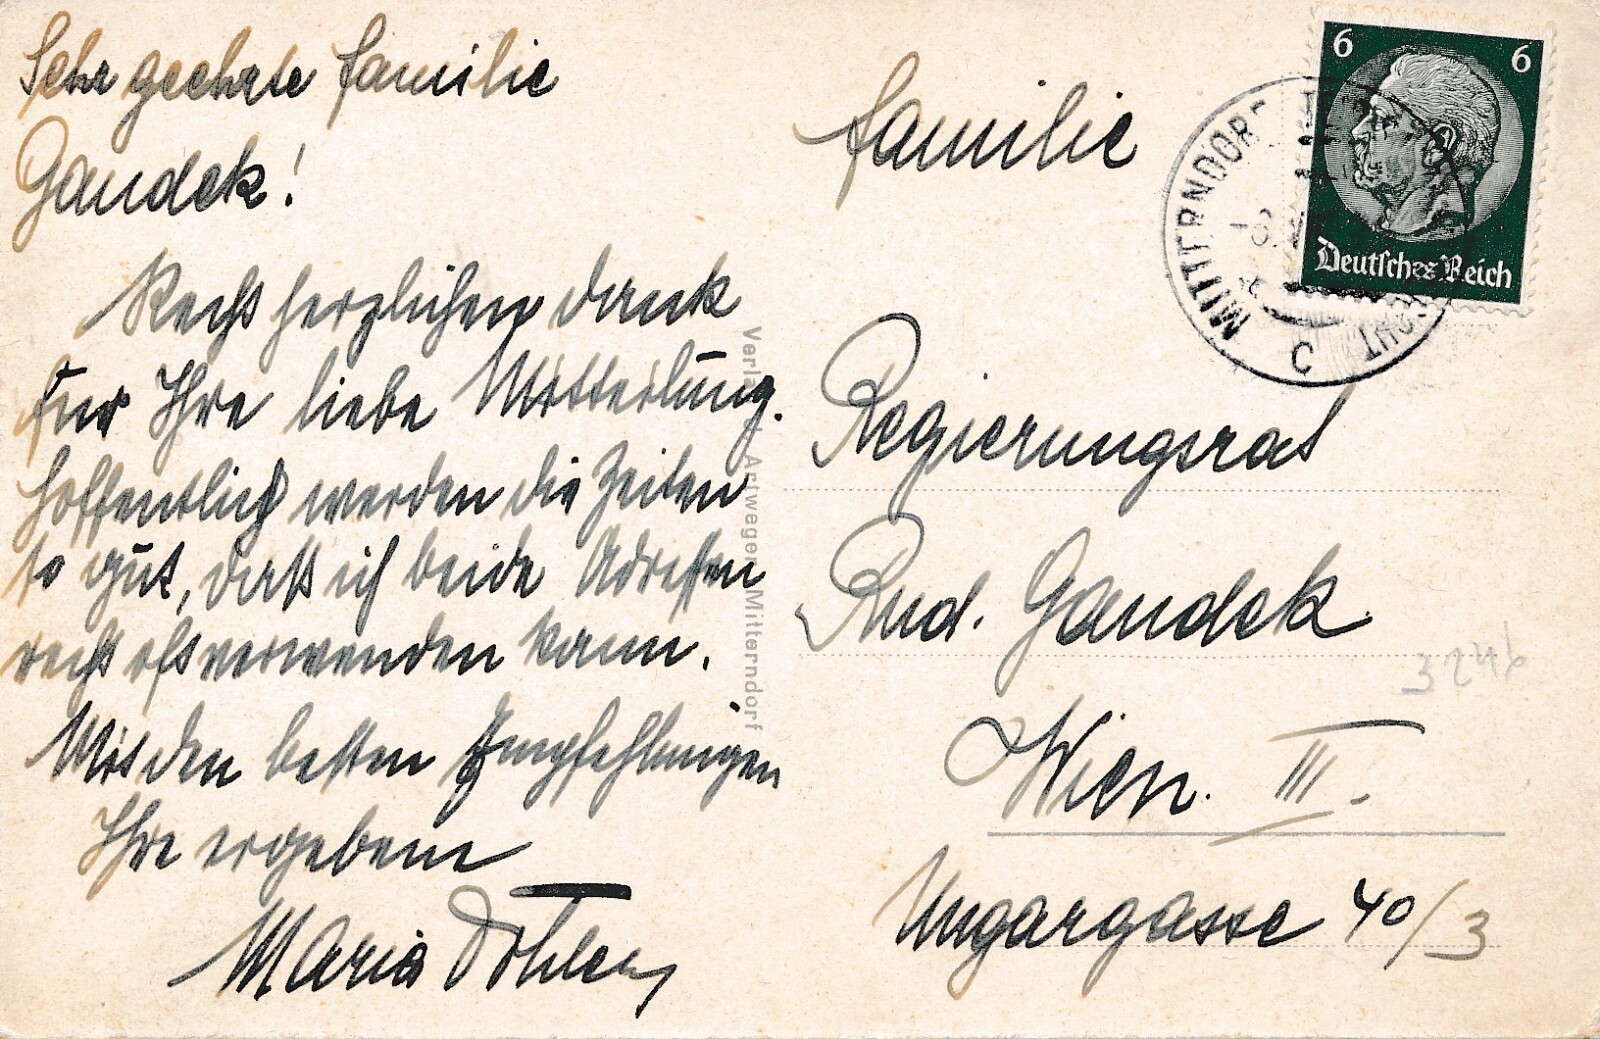 Sehr geehrte Familie
Gaudek!
Recht herzlichen Dank
für Ihre liebe Mitteilung.
Hoffentlich werden die Zeiten
so gut, daß ich beide Adressen
recht oft verwenden kann.
Mit den besten Empfehlungen
Ihre ergebene
Maria
Familie
Regierungsrat
Rud. Gaudek
Wien. III.
Ungargasse 40/3
6 6
Deutsches Reich
MITTERNDORF
C
Mitterndorf